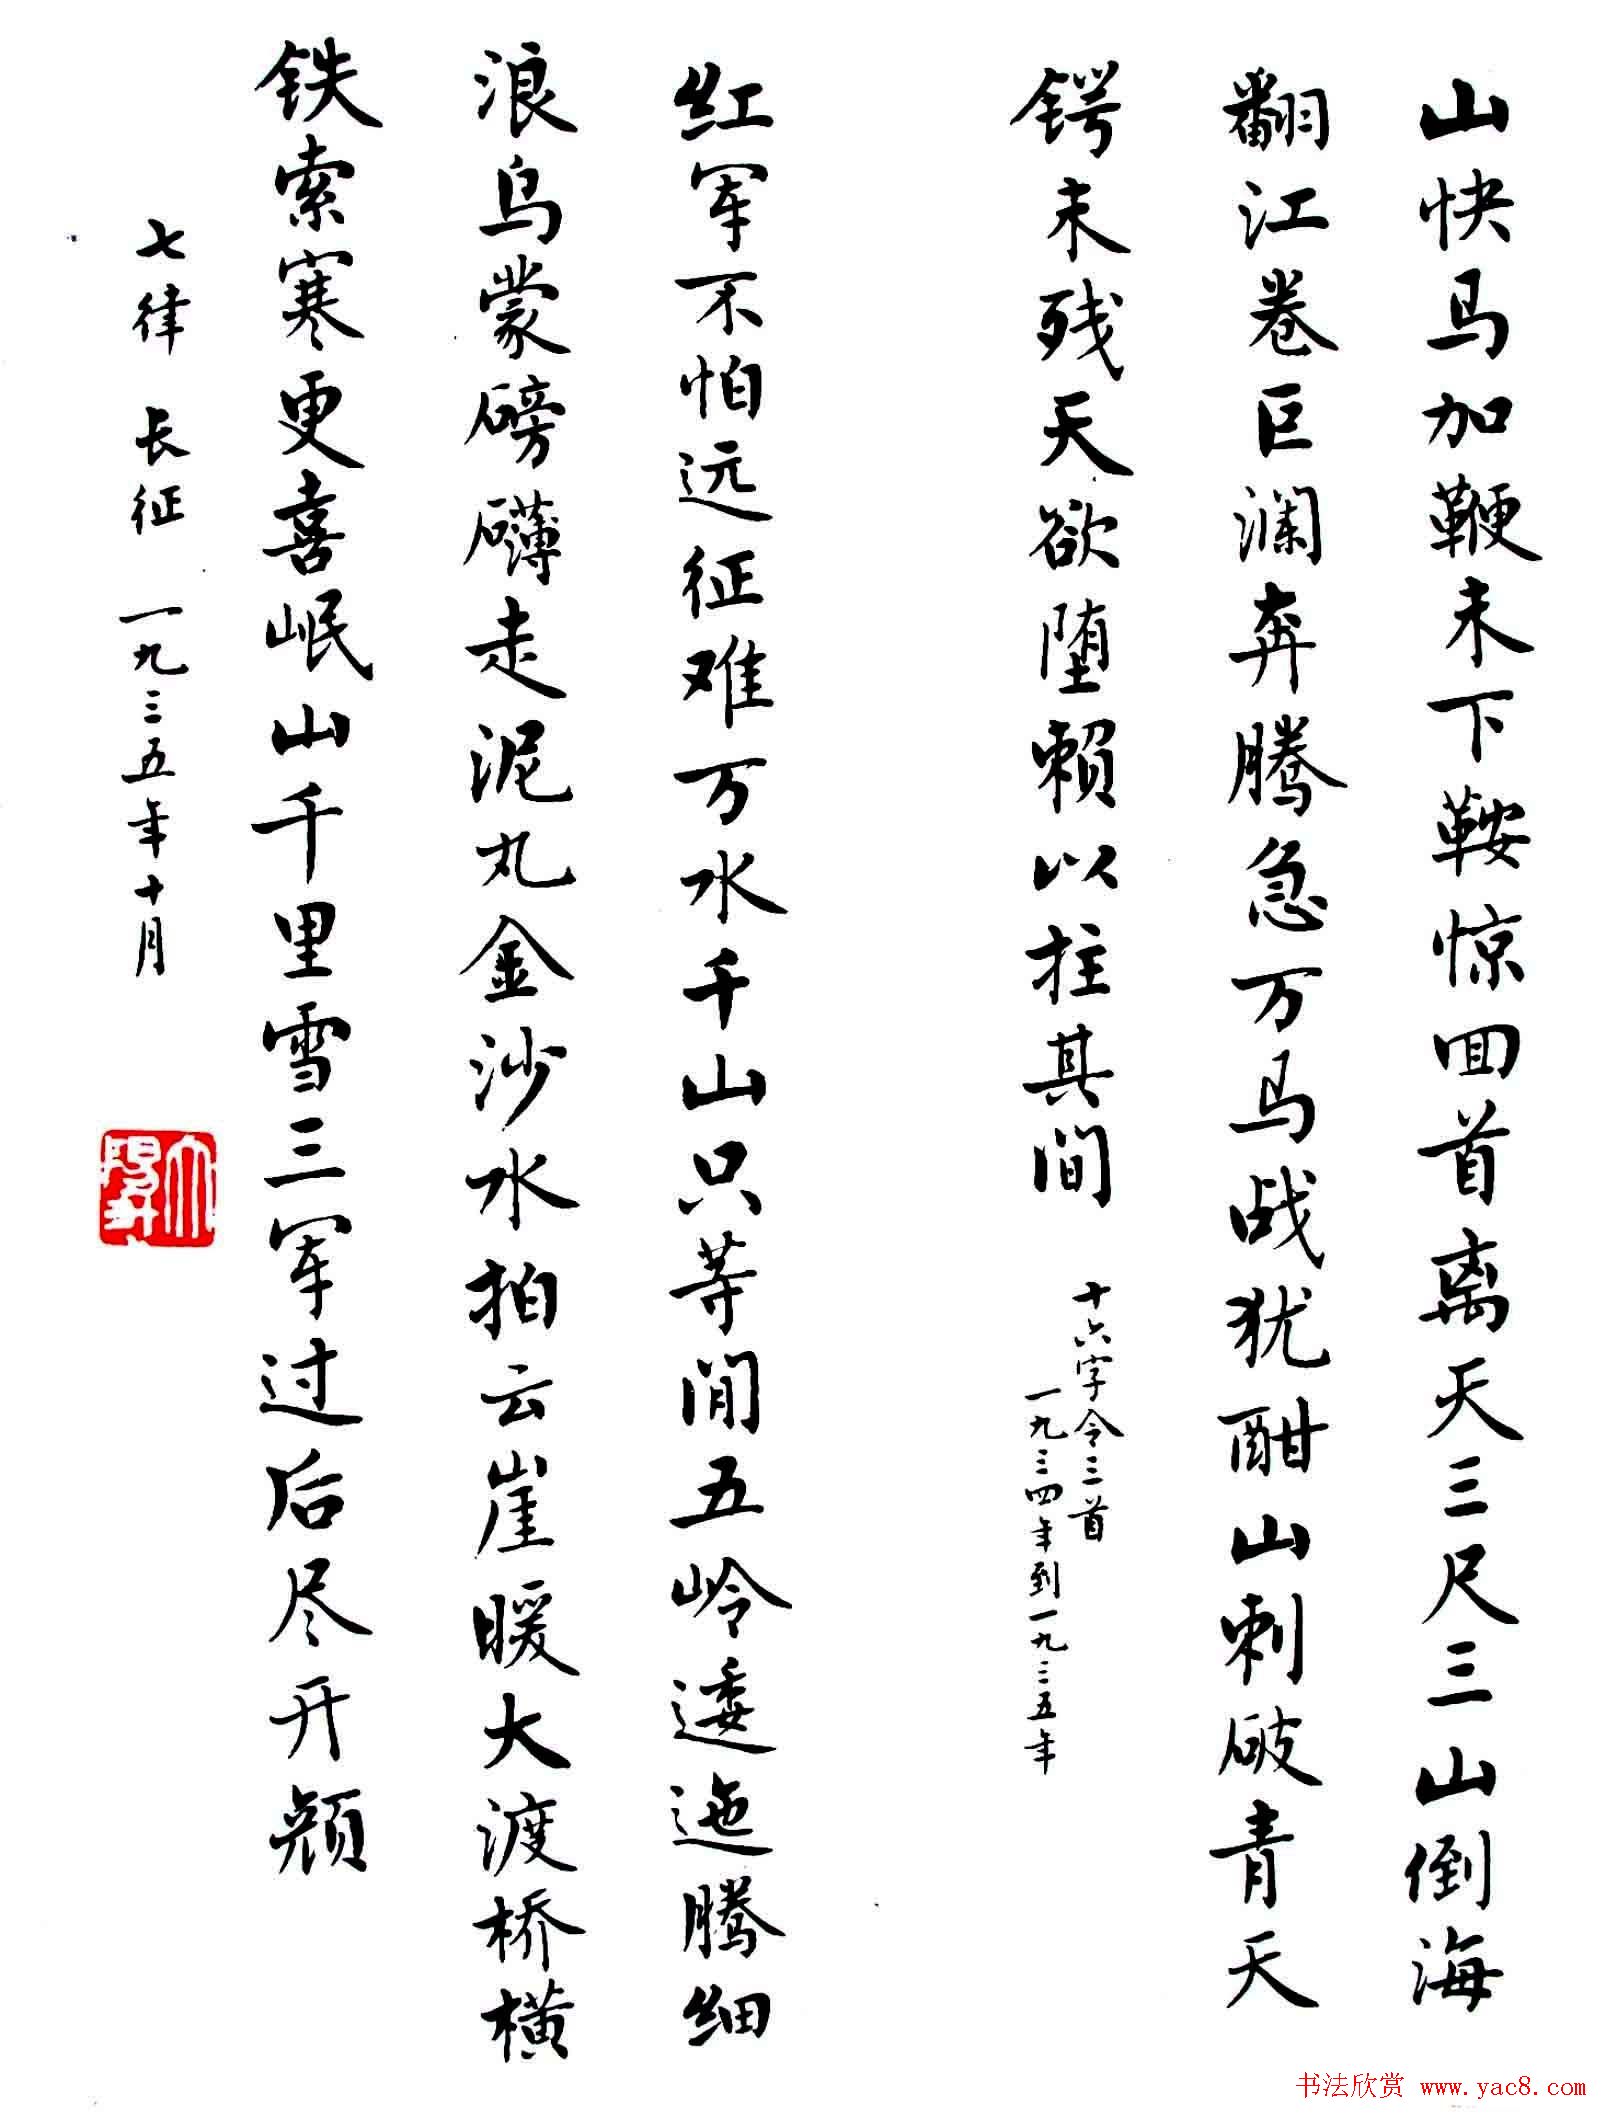 山快马加鞭未下鞍惊回首离天三尺三山倒海
翻江卷巨澜奔腾急万马战犹酣山刺破青天
锷未残天欲堕赖以拄其间
十六字令三首
一九三四年到一九三五年
红军不怕远征难万水千山只等闲五岭逶迤腾细
浪乌蒙磅礴走泥丸金沙水拍云崖暖大渡桥横
铁索寒更喜岷山千里雪三军过后尽开颜
七律 长征 一九三五年十月
书法欣赏 www.yac8.com